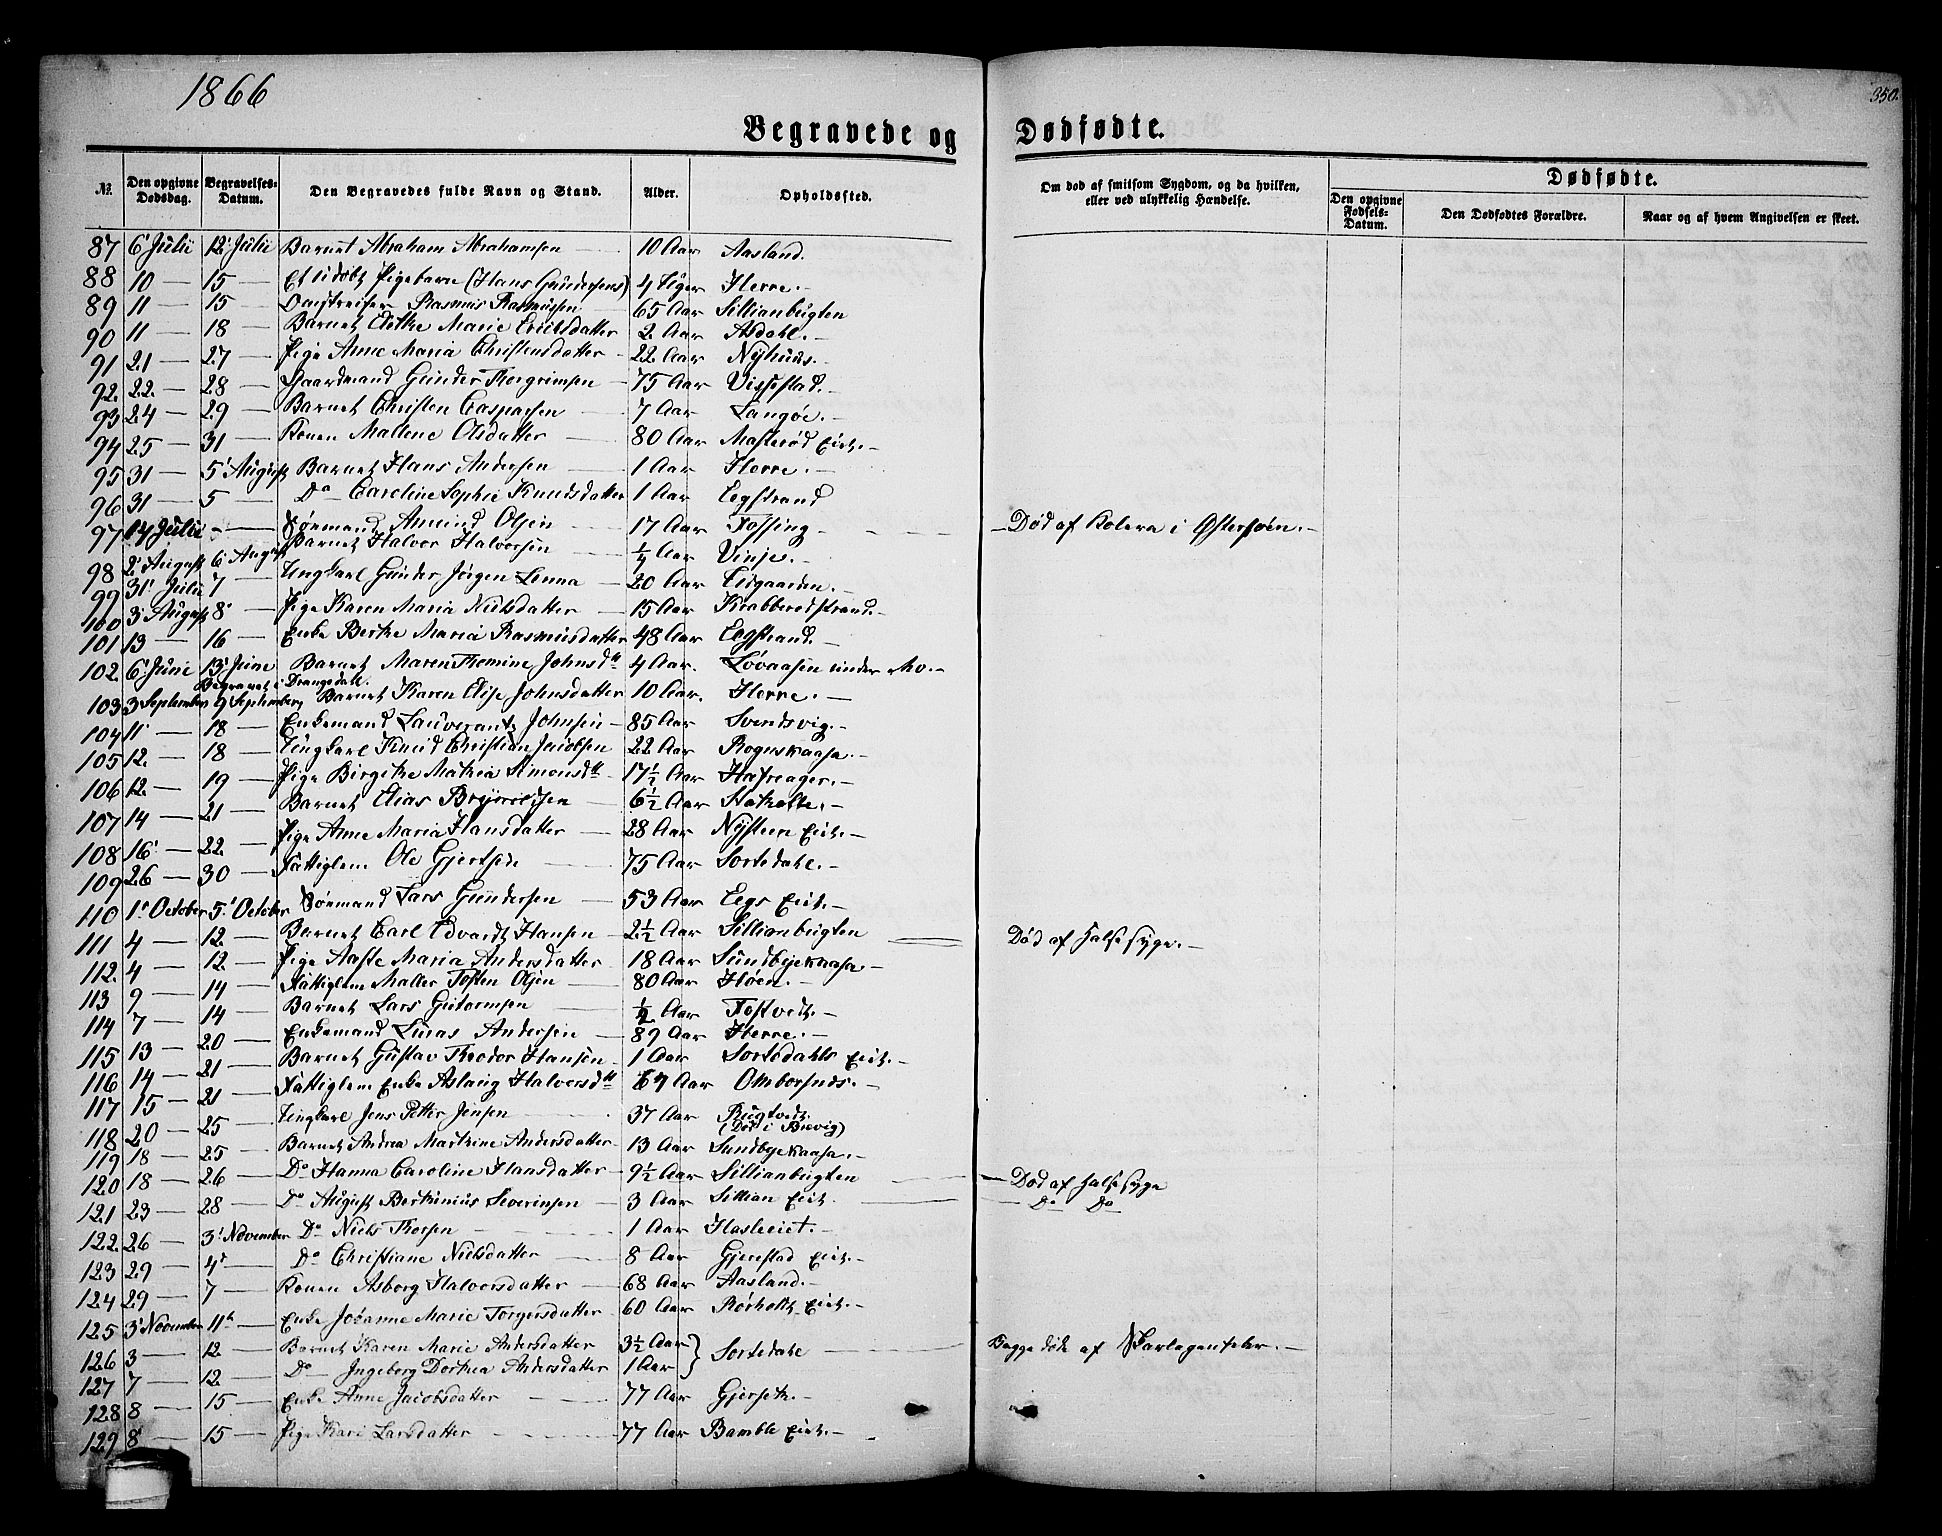 1866
350.
Begravede og Dødfødte.
№ Den opgivne Dødsdag. Begravelses-Datum. Den Begravedes fulde Navn og Stand. Alder. Opholdssted. Om død af smitsom Sygdom, og da hvilken, eller ved ulykkelig Hændelse. Dødfødte.
Den opgivne Fødsels-Datum. Den Dødfødtes Forældre. Naar og af hvem Angivelsen er skeet.
87 6' Julii 12' Julii Barnet Abraham Abrahamsen 10 Aar Aasland.
88 10 — 15 — Et udøbt Pigebarn (Hans Gundersens) 4 Uger Herre.
89 11 — 15 — Rasmus Rasmussen 65 Aar Sillianbugten
90 11 — 18 — Barnet Marie 2 Aar Asdahl.
91 21 — 27 — Pige Anne Maria Christensdatter 22 Aar Nyhuus.
92 22 — 28 — Gaardmand Gunder Thorgrimsen 75 Aar Vissestad.
93 24 — 29 — Barnet Christen Casparsen 7 Aar Langøe.
94 25 — 31 — Konen Mallene Olsdatter 80 Aar Eiet.
95 31 — 5' August Barnet Hans Andersen 1 Aar Herre.
96 31 — 5 — Do Caroline Sophie Knudsdatter 1 Aar Eegstrand
97 14 Julii — Sømand Amund Olsen 17 Aar Tossing — Død af Kolera i Østersøen.
98 2' August 6' August Barnet Halvor Halvorsen ¼ Aar Vinje.
99 31' Julii 7 — Ungkarl Gunder Jørgen Lenna 20 Aar Eidgaarden.
100 3' August 8' — Pige Karen Maria Nielsdatter 15 Aar Krabberødstrand.
101 13 — 16 — Enke Berthe Maria Rasmusdatter 48 Aar Eegstrand.
102 6' Junie 13' Junie Barnet Maren Thomine Johnsdtr 4 Aar. Løvaasen under Mo.
Begravet i Drangedal.
103 3' September 9' September Barnet Karen Elise Johnsdatter 10 Aar. Herre.
104 11' — 18 — Enkemand Lauverantz Johnsen 85 Aar Svendsvig.
105 12. — 18 — Ungkarl Knud Christian Jacobsen 22 Aar Rognskaasa.
106 12. — 19 — Pige Birgitte Mathea Simonsdtr 17½ Aar Hafreager.
107 14 — 21 — Barnet Elias 6½ Aar Stokolte.
108 16' — 22 — Pige Anne Maria Hansdatter 28 Aar Nysteen Eiet.
109 26 — 30 — Fattiglem Ole Gjertsen 75 Aar Sortedahl.
110 1' October 5' October Sømand Lars Gundersen 53 Aar Eegs Eiet.
111 4 — 12 — Barnet Carl Edvardt Hansen 2½ Aar Sillianbugten — Død af Halsesyge.
112 4 — 12 — Pige Aaste Maria Andersdatter 18 Aar Sundbyekaasa
113 9 — 14 — Fattiglem Møller Tosten Olsen 80 Aar Høen.
114 7 — 14 — Barnet Lars Gutormsen ½ Aar Tostvedt.
115 13 — 20 — Enkemand Lucas Andersen 89 Aar Herre.
116 14 — 21 — Barnet Gustav Theodor Hansen 1 Aar Sortedahls Eiet.
117 15 — 21 — Fattiglem Enke Aslaug Halvorsdtr 67 Aar Ombordsnæs.
118 20 — 25 — Ungkarl Jens Petter Jensen 37 Aar Rugtvedt.
(Død i Brevig)
119 18 — 25 — Barnet Andrea Martine Andersdatter 13 Aar Sundbyekaasa.
120 18 — 26 — Do Hanna Caroline Hansdatter 9½ Aar Sillianbugten — Død af Halsesyge
121 23 — 28 — Do August Bertinius Severinsen 3 Aar Sillian Eiet — Do Do
122 26 — 3' November Do Niels Thorsen 1 Aar Hasleeiet.
123 29 — 4' — Do Christiane Nielsdatter 8 Aar Gjerestad Eiet.
124 29 — 7 — Konen Asborg Halvorsdatter 68 Aar Aasland.
125 3' November 11te — Enke Johanne Marie Torgersdatter 60 Aar Rørholt Eiet.
126 3 — 12. — Barnet Karen Marie Andersdatter 3½ Aar } Sortedahl — Begge døde af Skarlagensfeber.
127 7 — 12. — Do Ingeborg Dorthea Andersdatter 1 Aar }
128 8 — 15 — Enke Anne Jacobsdatter 77 Aar Gjerseth.
129 8' — 15 — Pige Kari Larsdatter 77 Aar Bamble Eiet.